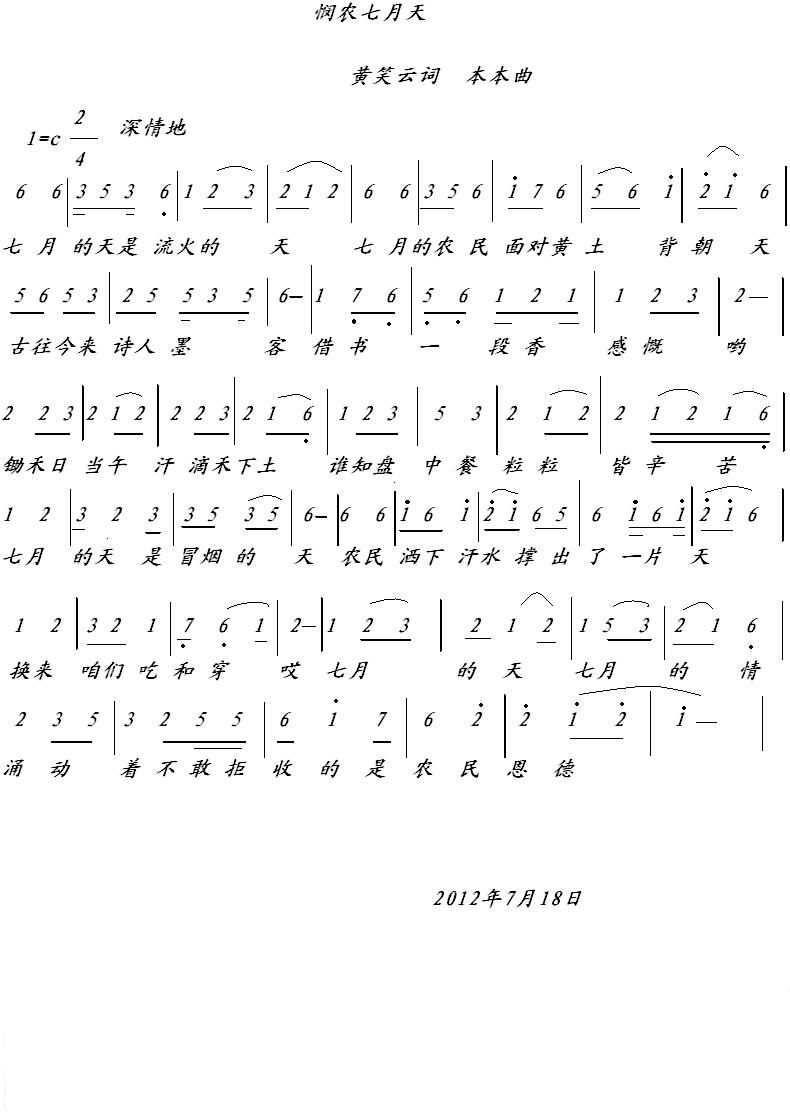 悯农七月天
黄笑云词 本本曲
1=c 2/4 深情地
6 6 | 3 5 3 6 | 1 2 3 | 2 1 2 | 6 6 | 3 5 6 | 1 7 6 | 5 6 1 | 2 1 6 |
七 月 的天是 流火的 天 七 月的农 民 面对黄 土 背 朝 天
5 6 5 3 | 2 5 5 3 5 | 6— | 1 7 6 | 5 6 1 2 1 | 1 2 3 | 2— |
古往今来 诗人 墨 客 借 书 一 段香 感 慨 哟
2 2 3 | 2 1 2 | 2 2 3 | 2 1 6 | 1 2 3 | 5 3 | 2 1 2 | 2 1 2 1 6 |
锄禾日 当午 汗 滴禾下土 谁知盘 中 餐 粒 粒 皆 辛 苦
1 2 | 3 2 3 | 3 5 3 5 | 6— | 6 6 | 1 6 1 | 2 1 6 5 | 6 1 6 1 | 2 1 6 |
七月 的天 是 冒烟 的 天 农民 洒下 汗水 撑 出 了 一片 天
1 2 | 3 2 1 | 7 6 1 | 2— | 1 2 3 | 2 1 2 | 1 5 3 | 2 1 6 |
换来 咱们 吃 和 穿 哎 七月 的 天 七月 的 情
2 3 5 | 3 2 5 5 | 6 1 7 | 6 2 | 2 1 2 | 1— |
涌 动 着 不 敢 拒 收 的 是 农 民 恩 德
2012年7月18日